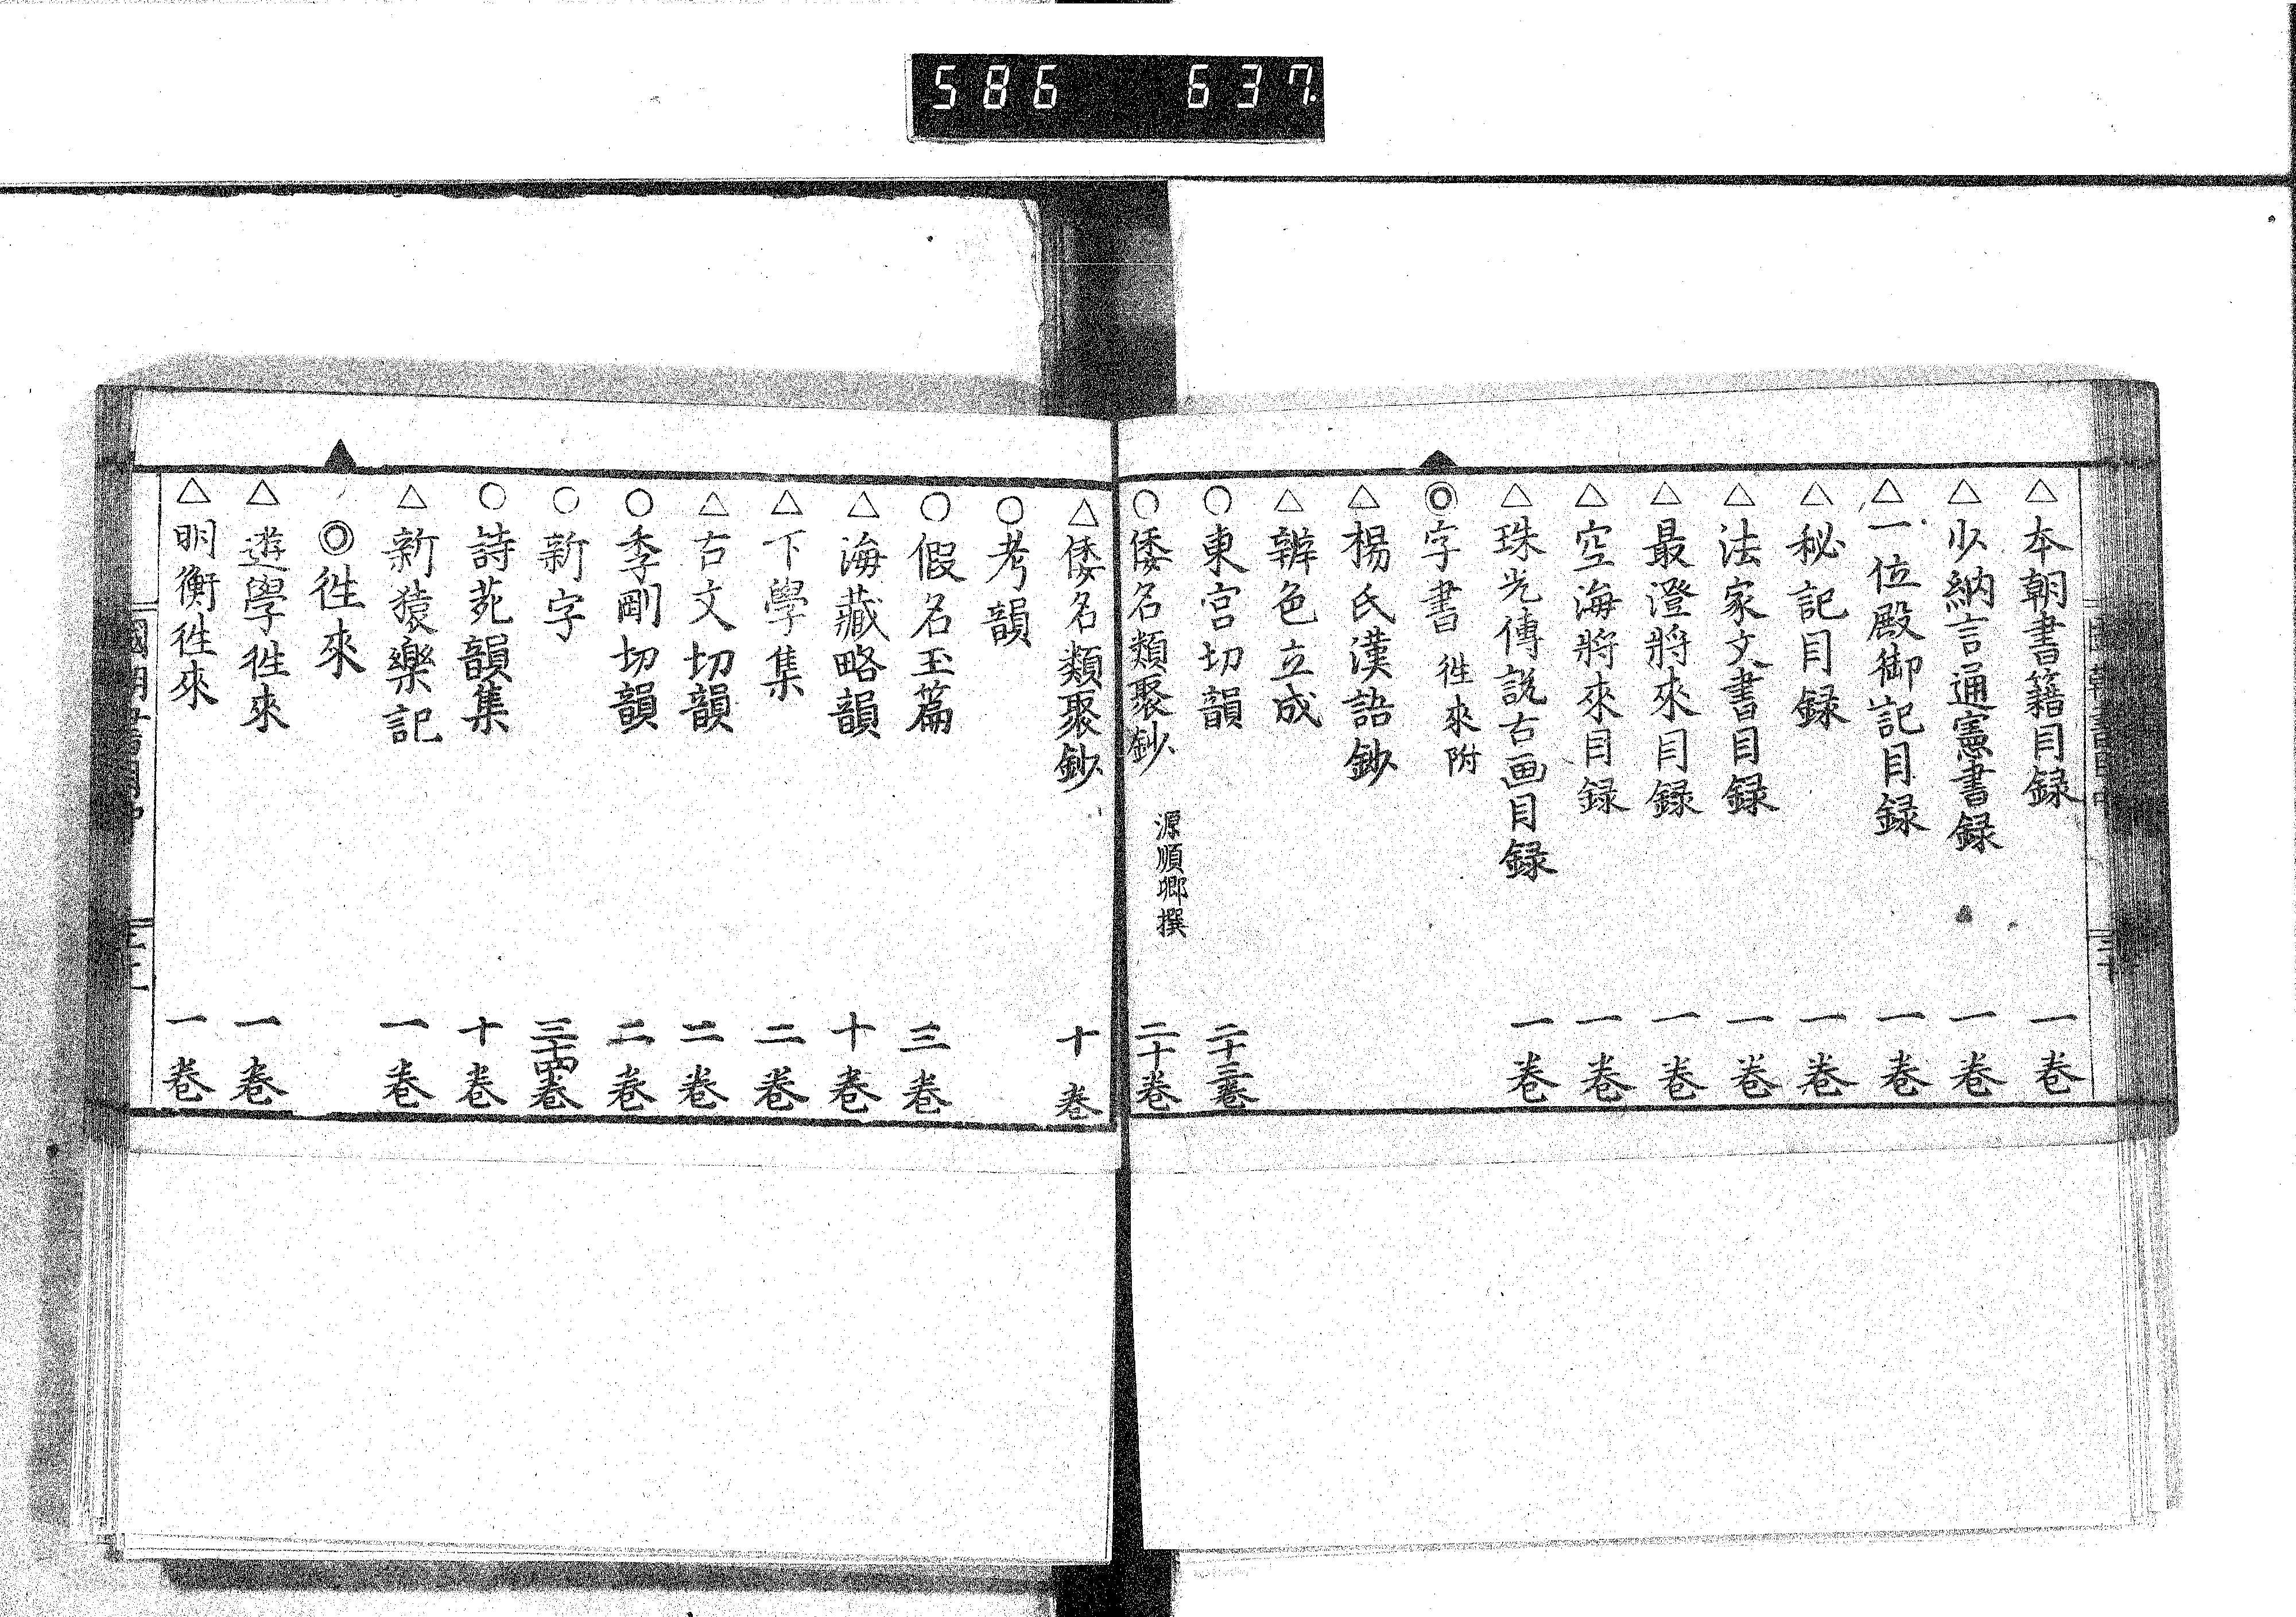 586 637.
△本朝書籍目録 一巻
△少納言通憲書録 一巻
△一位殿御記目録 一巻
△秘記目録 一巻
△法家文書目録 一巻
△最澄將來目録 一巻
△空海將來目録 一巻
△珠光傳説古画目録 一巻
◎字書 徃來附
△楊氏漢語鈔
△辨色立成
○東宮切韻 二十三巻
○倭名類聚鈔 源順郷撰 二十巻
△倭名類聚鈔 十巻
○考韻
○假名玉篇 三巻
△海藏略韻 十巻
△下學集 二巻
△古文切韻 二巻
○季剛切韻 二巻
○新字 三十四巻
○詩苑韻集 十巻
△新猿樂記 一巻
◎徃來
△遊學徃來 一巻
△明衡徃來 一巻